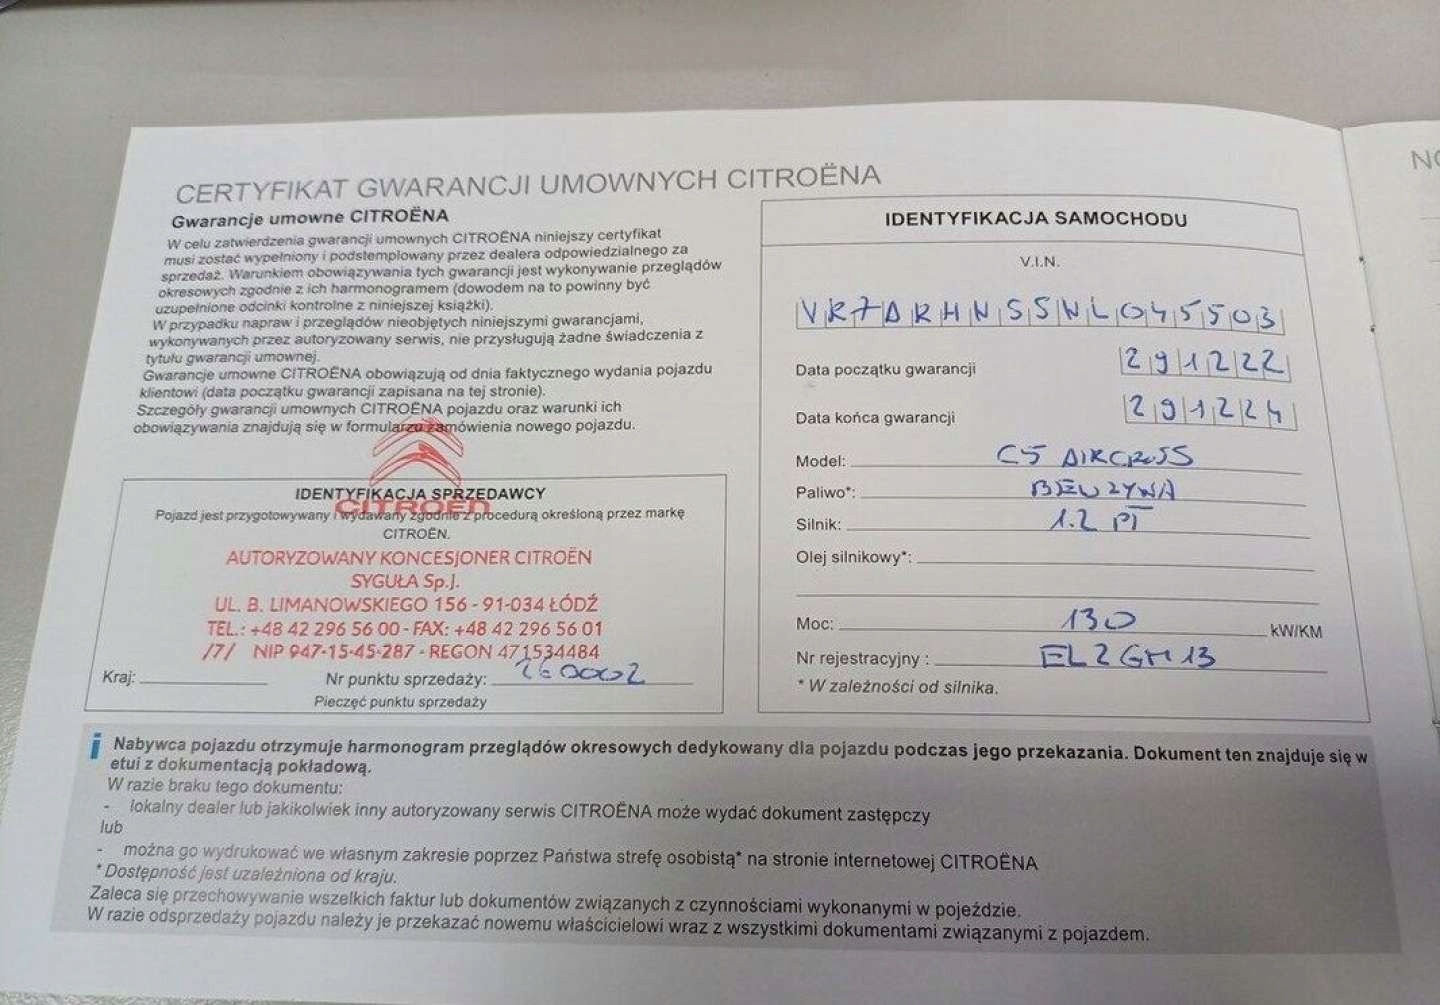 CERTYFIKAT GWARANCJI UMOWNYCH CITROËNA
Gwarancje umowne CITROËNA
W celu zatwierdzenia gwarancji umownych CITROËNA niniejszy certyfikat
musi zostać wypełniony i podstemplowany przez dealera odpowiedzialnego za
sprzedaż. Warunkiem obowiązywania tych gwarancji jest wykonywanie przeglądów
okresowych zgodnie z ich harmonogramem (dowodem na to powinny być
uzupełnione odcinki kontrolne z niniejszej książki).
W przypadku napraw i przeglądów nieobjętych niniejszymi gwarancjami,
wykonywanych przez autoryzowany serwis, nie przysługują żadne świadczenia z
tytułu gwarancji umownej.
Gwarancje umowne CITROËNA obowiązują od dnia faktycznego wydania pojazdu
klientowi (data początku gwarancji zapisana na tej stronie).
Szczegóły gwarancji umownych CITROËNA pojazdu oraz warunki ich
obowiązywania znajdują się w formularzu zamówienia nowego pojazdu.
IDENTYFIKACJA SPRZEDAWCY
CITROËN
Pojazd jest przygotowywany i wydawany zgodnie z procedurą określoną przez markę
CITROËN.
AUTORYZOWANY KONCESJONER CITROËN
SYGUŁA Sp.J.
UL. B. LIMANOWSKIEGO 156 - 91-034 ŁÓDŹ
TEL.: +48 42 296 56 00 - FAX: +48 42 296 56 01
/7/ NIP 947-15-45-287 - REGON 471534484
Kraj: Nr punktu sprzedaży: 260002
Pieczęć punktu sprzedaży
IDENTYFIKACJA SAMOCHODU
V.I.N.
VR7ARHNSSNL045503
Data początku gwarancji 291222
Data końca gwarancji 291224
Model: C5 AIRCROSS
Paliwo*: BENZYNA
Silnik: 1.2 PT
Olej silnikowy*:
Moc: 130 kW/KM
Nr rejestracyjny : EL2GM13
* W zależności od silnika.
i Nabywca pojazdu otrzymuje harmonogram przeglądów okresowych dedykowany dla pojazdu podczas jego przekazania. Dokument ten znajduje się w
etui z dokumentacją pokładową.
W razie braku tego dokumentu:
- lokalny dealer lub jakikolwiek inny autoryzowany serwis CITROËNA może wydać dokument zastępczy
lub
- można go wydrukować we własnym zakresie poprzez Państwa strefę osobistą* na stronie internetowej CITROËNA
* Dostępność jest uzależniona od kraju.
Zaleca się przechowywanie wszelkich faktur lub dokumentów związanych z czynnościami wykonanymi w pojeździe.
W razie odsprzedaży pojazdu należy je przekazać nowemu właścicielowi wraz z wszystkimi dokumentami związanymi z pojazdem.